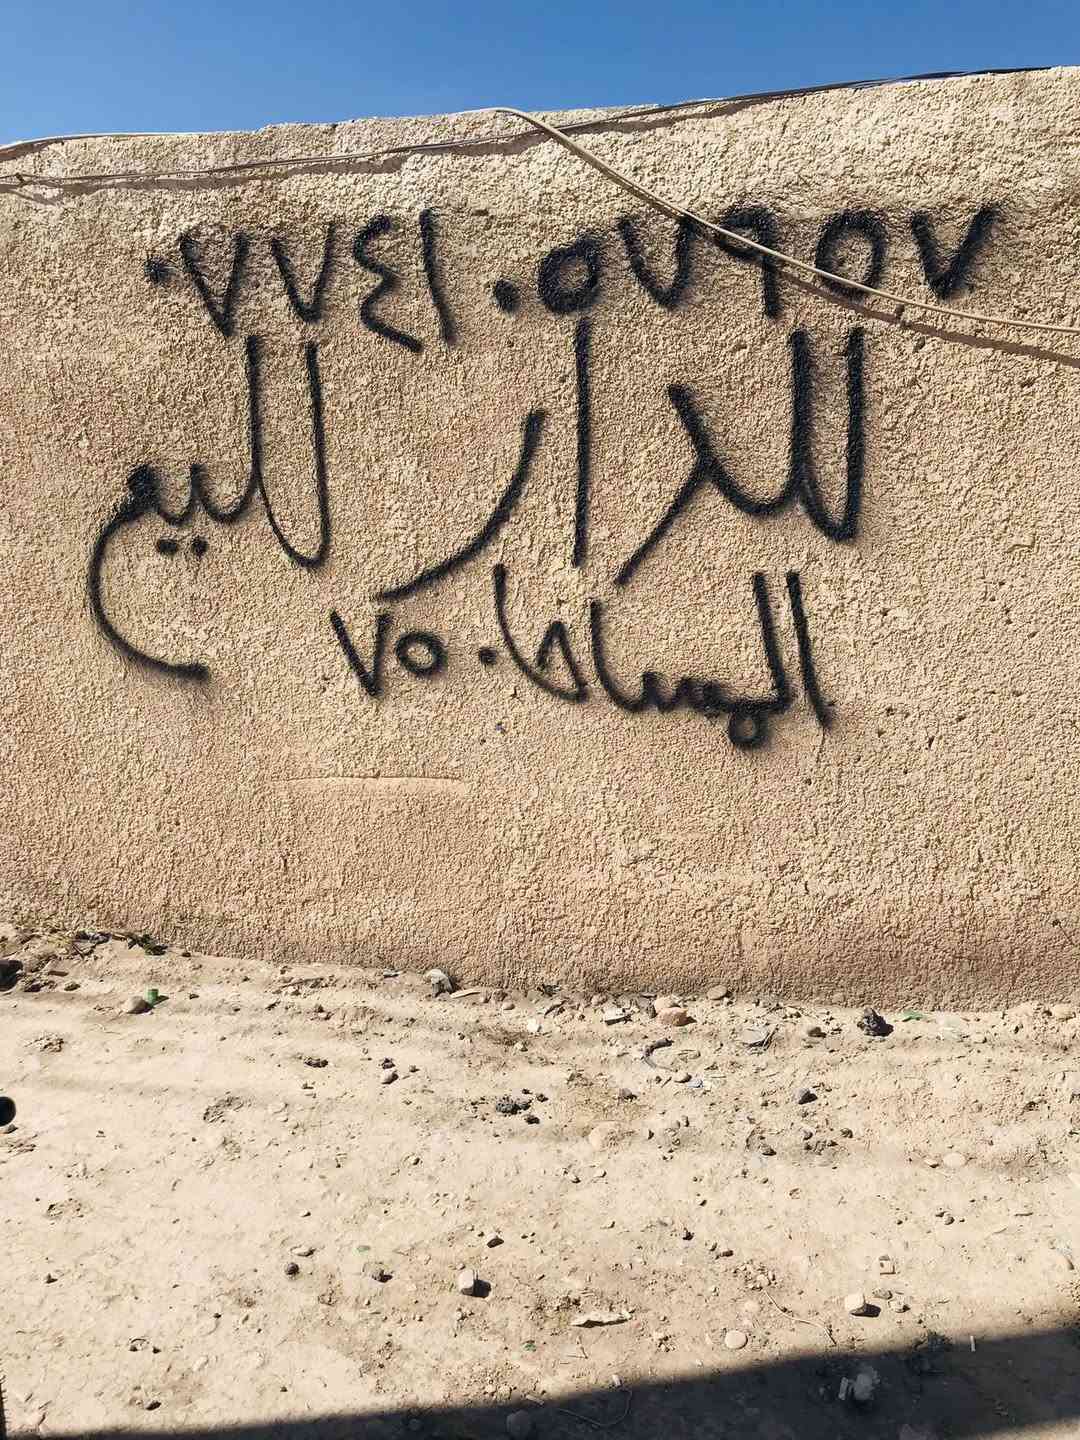 ٠٧٧٤١٠٥٧٩٥٧
الدار للبيع
المساحه ٧٥٠